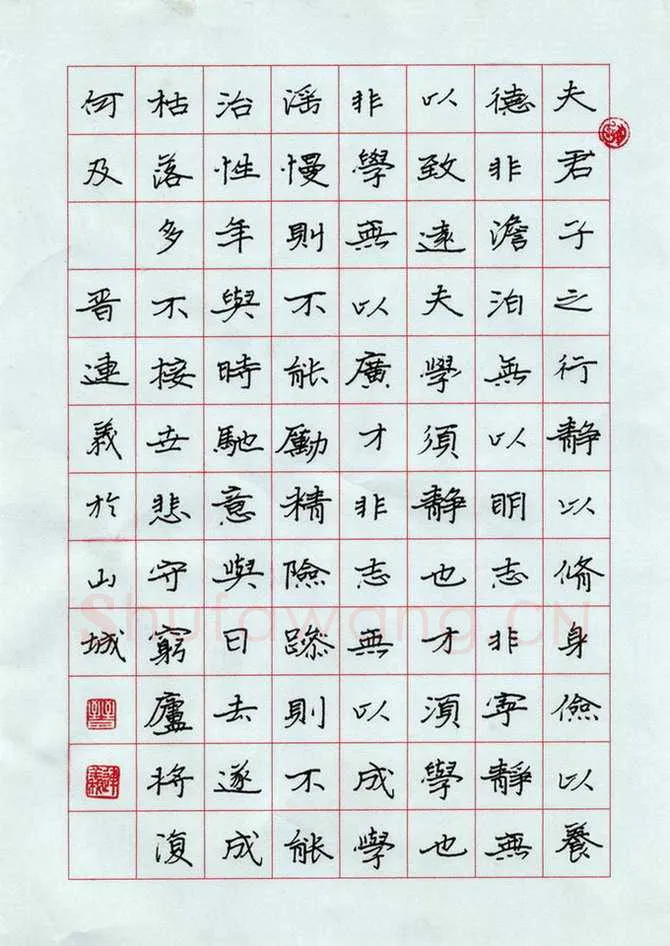 夫君子之行靜以脩身儉以養
德非澹泊無以明志非寧靜無
以致遠夫學須靜也才須學也
非學無以廣才非志無以成學
滛慢則不能勵精險躁則不能
治性年與時馳意與日去遂成
枯落多不接世悲守窮廬將復
何及 晋連義於山城
Shufawang.CN